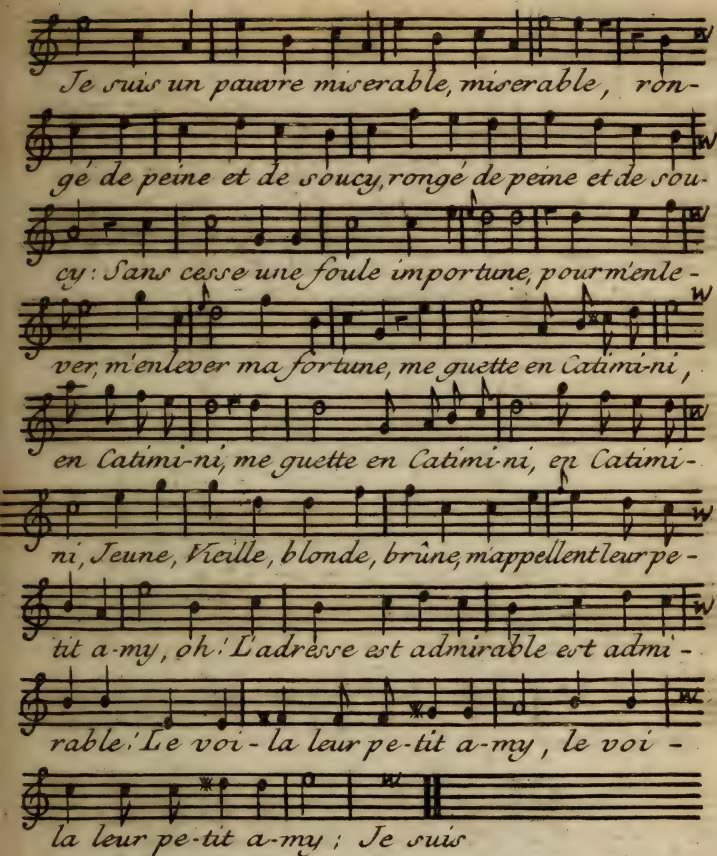 Je suis un pauvre miserable, miserable, ron-
gé de peine et de soucy, rongé de peine et de sou-
cy: Sans cesse une foule importune, pour m'enle-
ver, m'enlever ma fortune, me guette en Catimi-ni,
en Catimi-ni, me guette en Catimi-ni, en Catimi-
ni, Jeune, Vieille, blonde, brûne, m'appellent leur pe-
tit a-my, oh! L'adresse est admirable est admi-
rable! Le voi-la leur pe-tit a-my, le voi-
la leur pe-tit a-my; Je suis